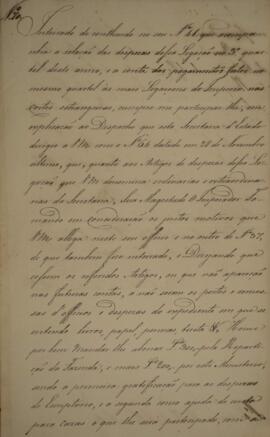 Inteirado do conteudo no seu Nº 41 que acompa-
nha a relação das despezas dessa Legação no 3º quar
tel deste anno, e a conta dos pagamentos feitos no
mesmo quartel ás mais Legações do Imperio nas
Cortes estrangeiras, cumpre-me participar-lhe, em
replicação ao Despacho que esta Secretaria d'Estado
dirigio a VM com o Nº 36 datado em 28 de Novembro
ultimo, que, quanto aos Artigos de despezas dessa Le-
gação que VM denomina ordinarias e extraordina-
rias da Secretaria, Sua Magestade O Imperador To-
mando em consideração os justos motivos que
VM allega neste seu officio e no outro de Nº 37,
de que tambem fico inteirado, e Querendo que
cessem os referidos Artigos, em que não appareção
nas futuras contas, a não serem os portes e remes-
sas d'officios e despezas do expediente em que se
entende livros, papel, pennas, tinta &c, Houve
por bem Mandar-lhe abonar pela Reparti-
ção da Fazenda, e mais por este Ministerio,
sendo a primeira gratificação para as despezas
de Escriptorio, e a segunda como ajuda de custo
para cazas: o que lhe será participado,